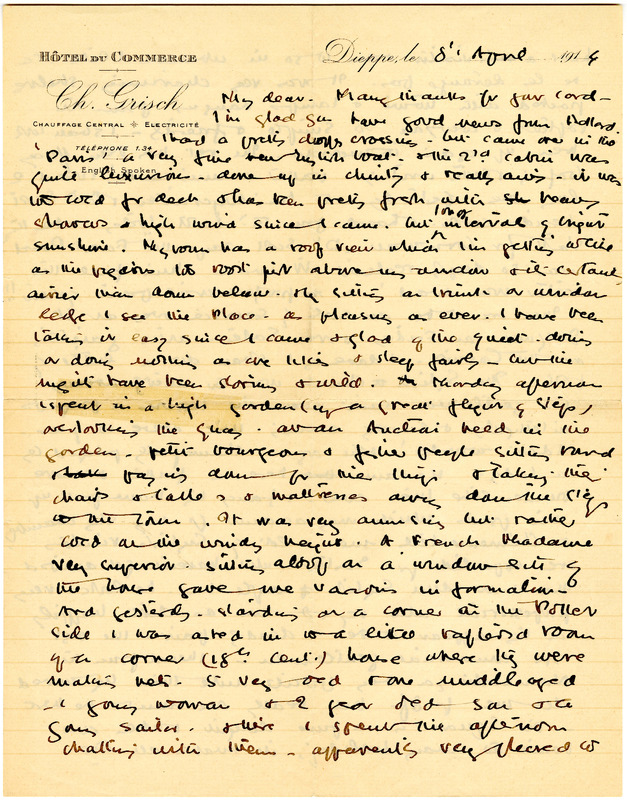 HÔTEL DU COMMERCE
Dieppe, le 8th April 1914
Ch. Grisch
CHAUFFAGE CENTRAL ÉLECTRICITÉ
TÉLÉPHONE 1.34
English Spoken
My dear. Many thanks for your card -
I'm glad you have good news from
I had a pretty crossing - but came over in the
'Paris' a very fine new English boat. & the 2nd cabin was
quite luxurious - done up in chintz & really - it was
too cold for deck & has been pretty fresh with heavy
showers & high wind since I came. but long interval of bright
sunshine. My room has a roof view which I'm getting
as the pigeons too roost just above my window & it's certainly
airier than down below. By sitting on trunk or window
ledge I see the Place - as pleasing as ever. I have been
taking it easy since I came & glad of the quiet - doing
or doing nothing as one likes & sleep fairly - but the
nights have been stormy & wild. Monday afternoon
I spent in a high garden (up a great flight of steps)
overlooking the Quay - at an Auction held in the
garden - petit bourgeois & fisher people sitting round
paying down for the things & taking their
chairs & tables & mattresses away down the steps
to the town. It was very amusing but rather
cold on the windy height. A French Madame
very superior - sitting aloof on a window sill of
the house gave me various information -
And yesterday - standing on a corner at the Pollet
side I was asked in to a little raftered room
of a corner (18th cent.) house where they were
making nets. 5 very old & one middle aged
- 1 young woman & 2 year old son & a
young sailor. & there I spent the afternoon
chatting with them - apparently very pleased to